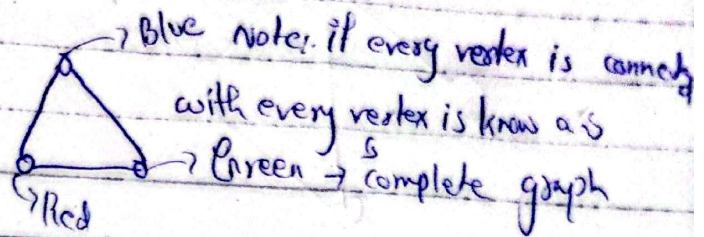 → Blue Note:. if every vertex is connected
with every vertex is know as
→ Green → complete graph
→ Red